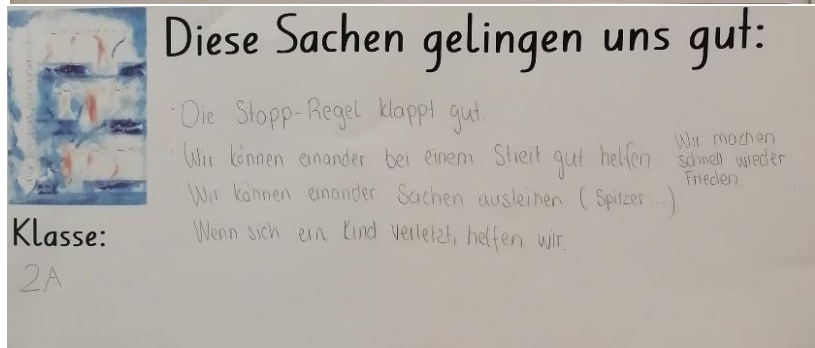 Diese Sachen gelingen uns gut:
· Die Stopp-Regel klappt gut.
· Wir können einander bei einem Streit gut helfen
Wir machen
schnell wieder
Frieden.
· Wir können einander Sachen ausleihen (Spitzer ...)
· Wenn sich ein Kind verletzt, helfen wir.
Klasse:
2A